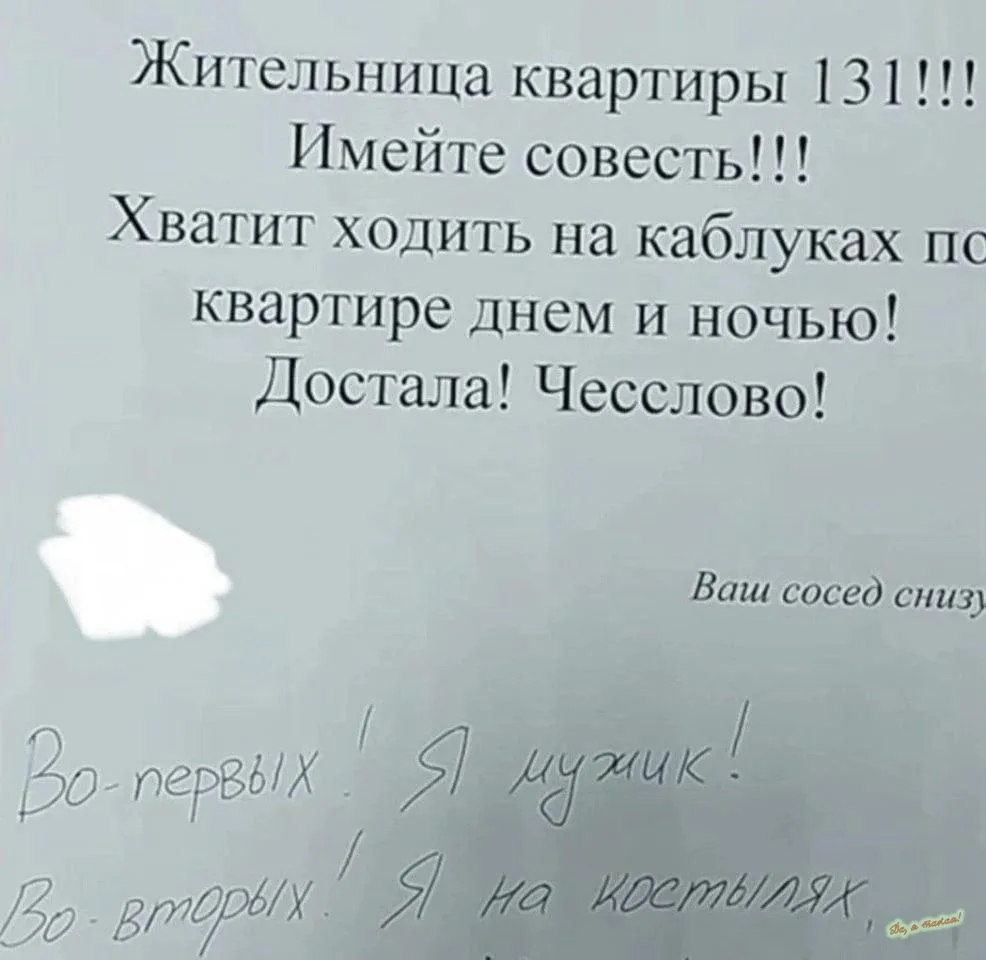 Жительница квартиры 131!!!
Имейте совесть!!!
Хватит ходить на каблуках по
квартире днем и ночью!
Достала! Чесслово!
Ваш сосед снизу
Во-первых! Я мужик!
Во-вторых! Я на костылях,
Да, я такая!